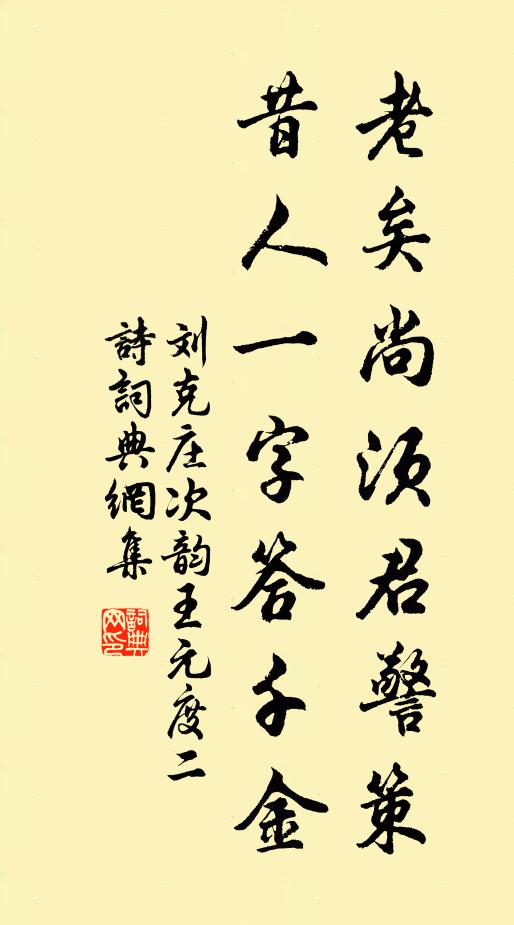 老矣尚须君警策
昔人一字答千金
刘克庄次韵王元度二
詩詞典網集
詞典
网印